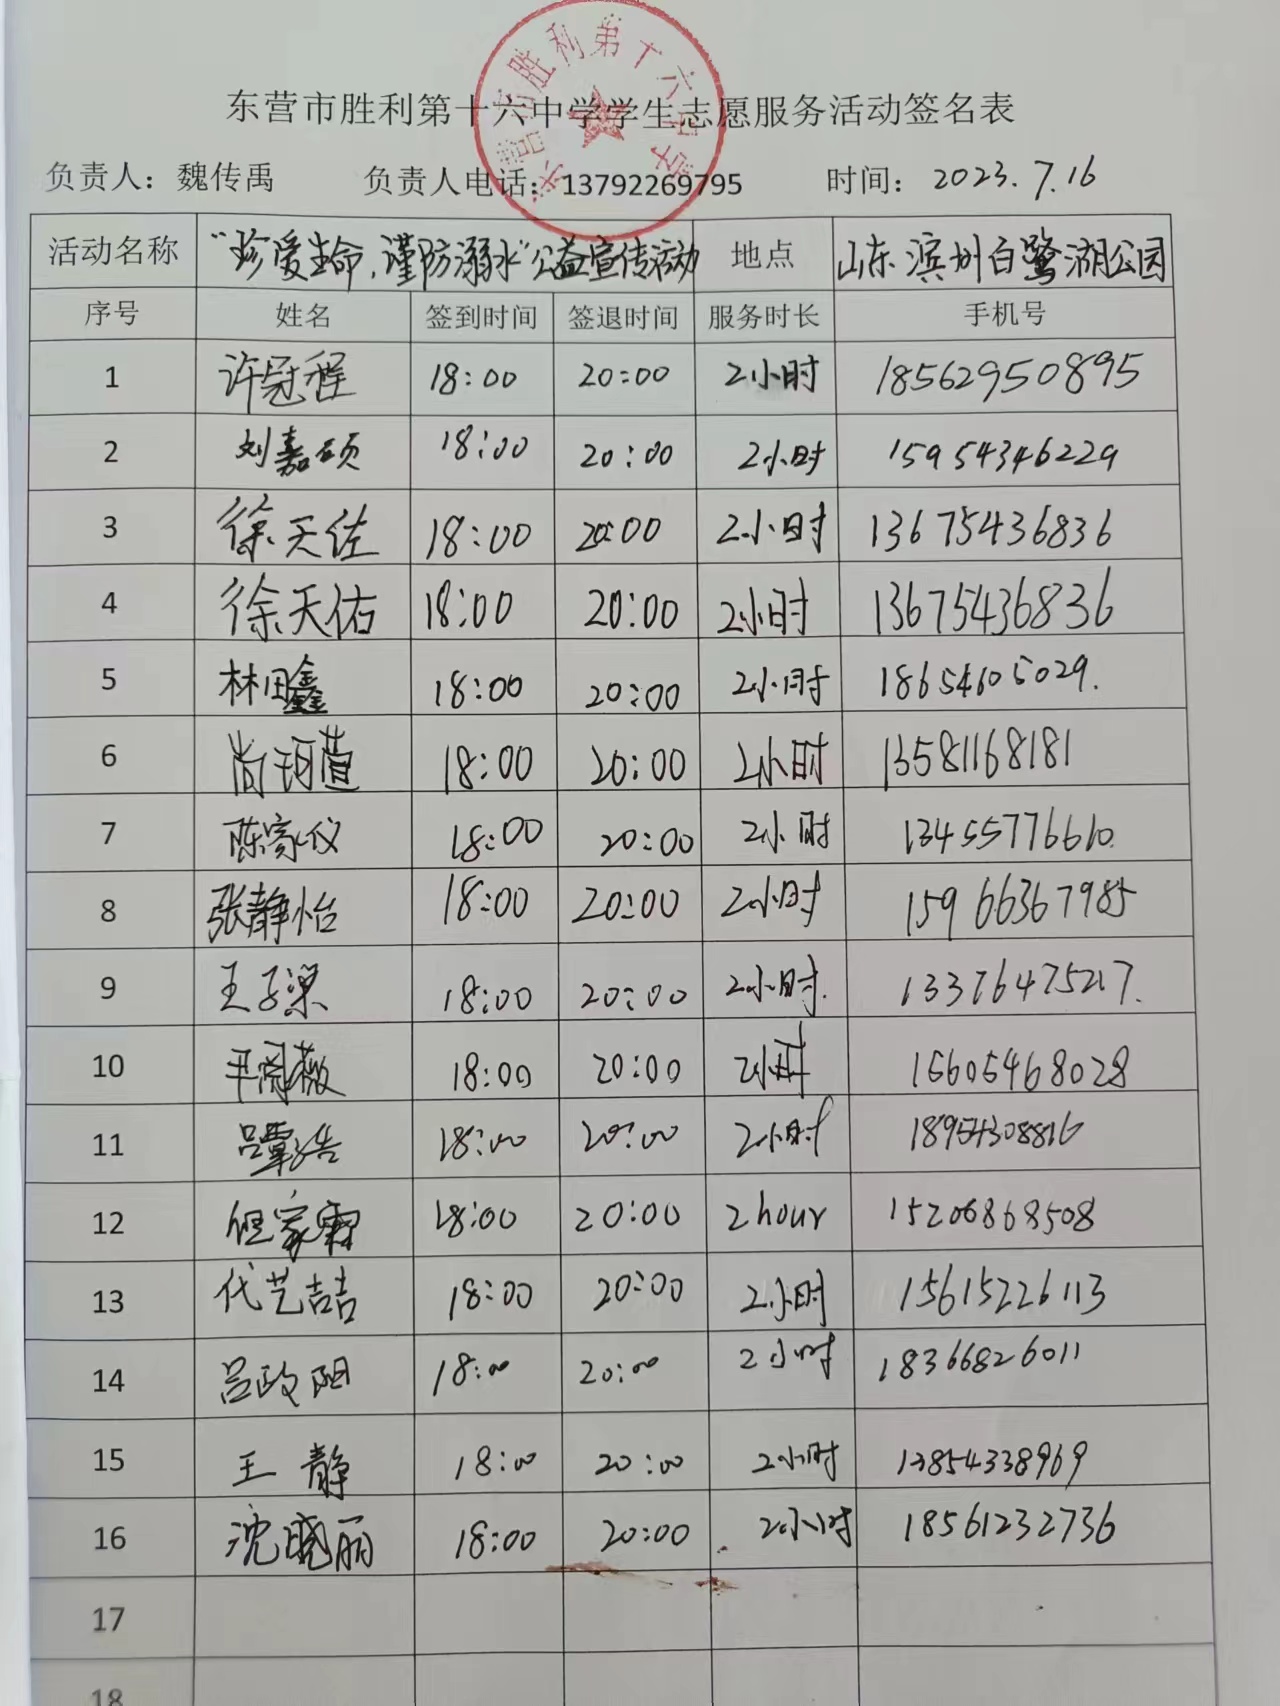 东营市胜利第十六中学
东营市胜利第十六中学学生志愿服务活动签名表
负责人：魏传禹 负责人电话：13792269795 时间：2023.7.16
活动名称 “珍爱生命，谨防溺水”公益宣传活动 地点 山东滨州白鹭湖公园
序号 姓名 签到时间 签退时间 服务时长 手机号
1 许冠程 18:00 20:00 2小时 18562950895
2 刘嘉硕 18:00 20:00 2小时 15954346229
3 徐天佐 18:00 20:00 2小时 13675436836
4 徐天佑 18:00 20:00 2小时 13675436836
5 林田鑫 18:00 20:00 2小时 18654605029.
6 尚珂萱 18:00 20:00 2小时 13581168181
7 陈家仪 18:00 20:00 2小时 13455776610.
8 张静怡 18:00 20:00 2小时 15966367985
9 王子梁 18:00 20:00 2小时. 13376475217.
10 18:00 20:00 2小时 15605468028
11 18:00 20:00 2小时 18954308816
12 但家霖 18:00 20:00 2hour 15206868508
13 代艺喆 18:00 20:00 2小时 15615226113
14 吕政阳 18:00 20:00 2小时 18366826011
15 王静 18:00 20:00 2小时 13854338969
16 沈晓丽 18:00 20:00 2小时 18561232736
17
18